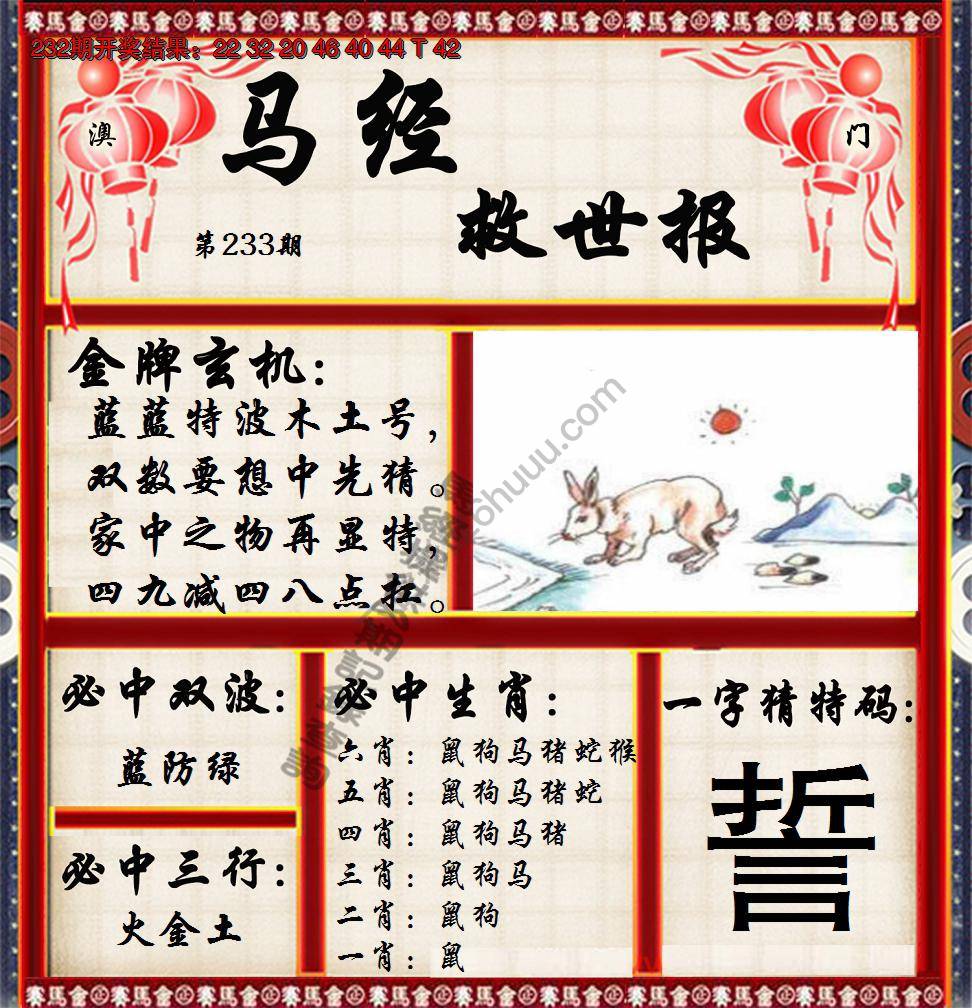 賽馬會
232期开奖结果：22 32 20 46 40 44 T 42
澳
门
马经
救世报
第233期
金牌玄机：
蓝蓝特波木土号，
双数要想中先猜。
家中之物再显特，
四九减四八点扛。
必中双波：
蓝防绿
必中三行：
火金土
必中生肖：
六肖：鼠狗马猪蛇猴
五肖：鼠狗马猪蛇
四肖：鼠狗马猪
三肖：鼠狗马
二肖：鼠狗
一肖：鼠
一字猜特码：
誓